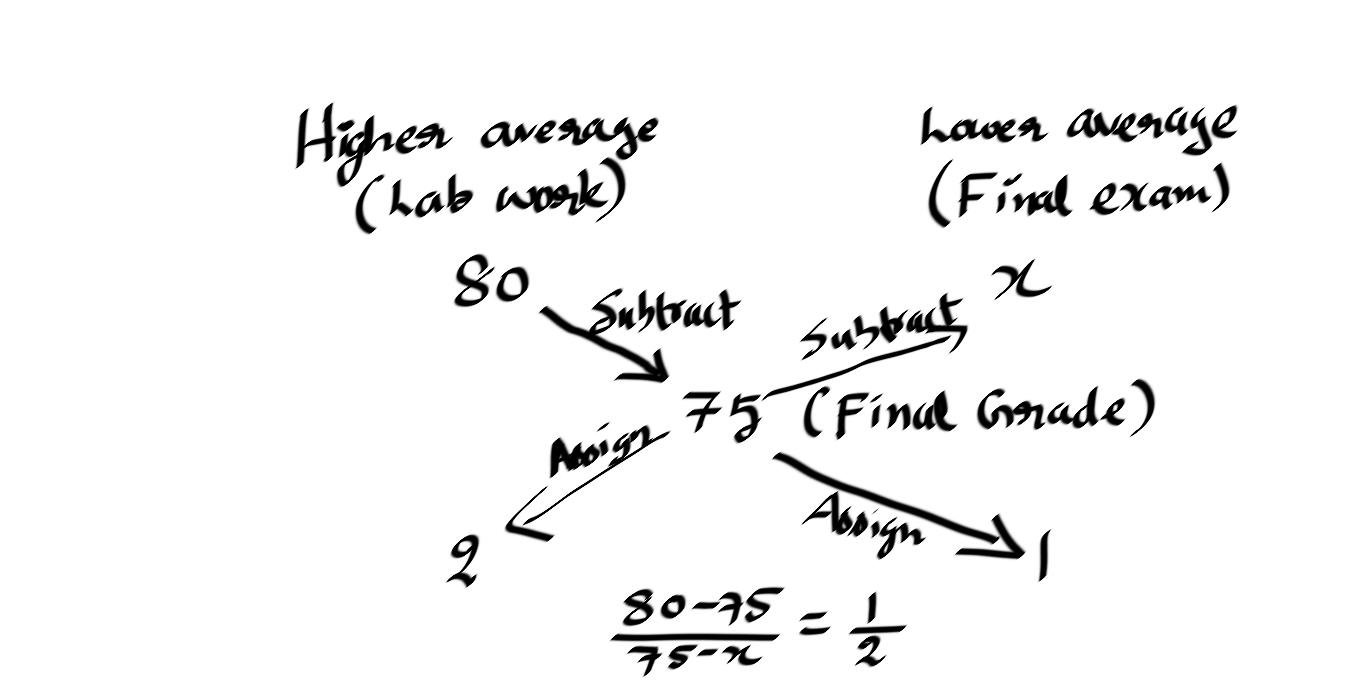 Higher average
(Lab work)
Lower average
(Final exam)
80
x
Subtract
Subtract
75 (Final Grade)
Assign
Assign
2
1
80-75 = 1
75-x 2